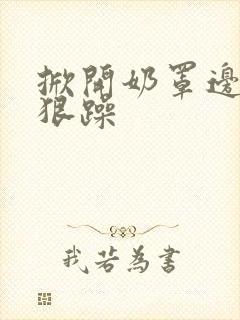 掀開奶罩邊
狠躁
我若為書